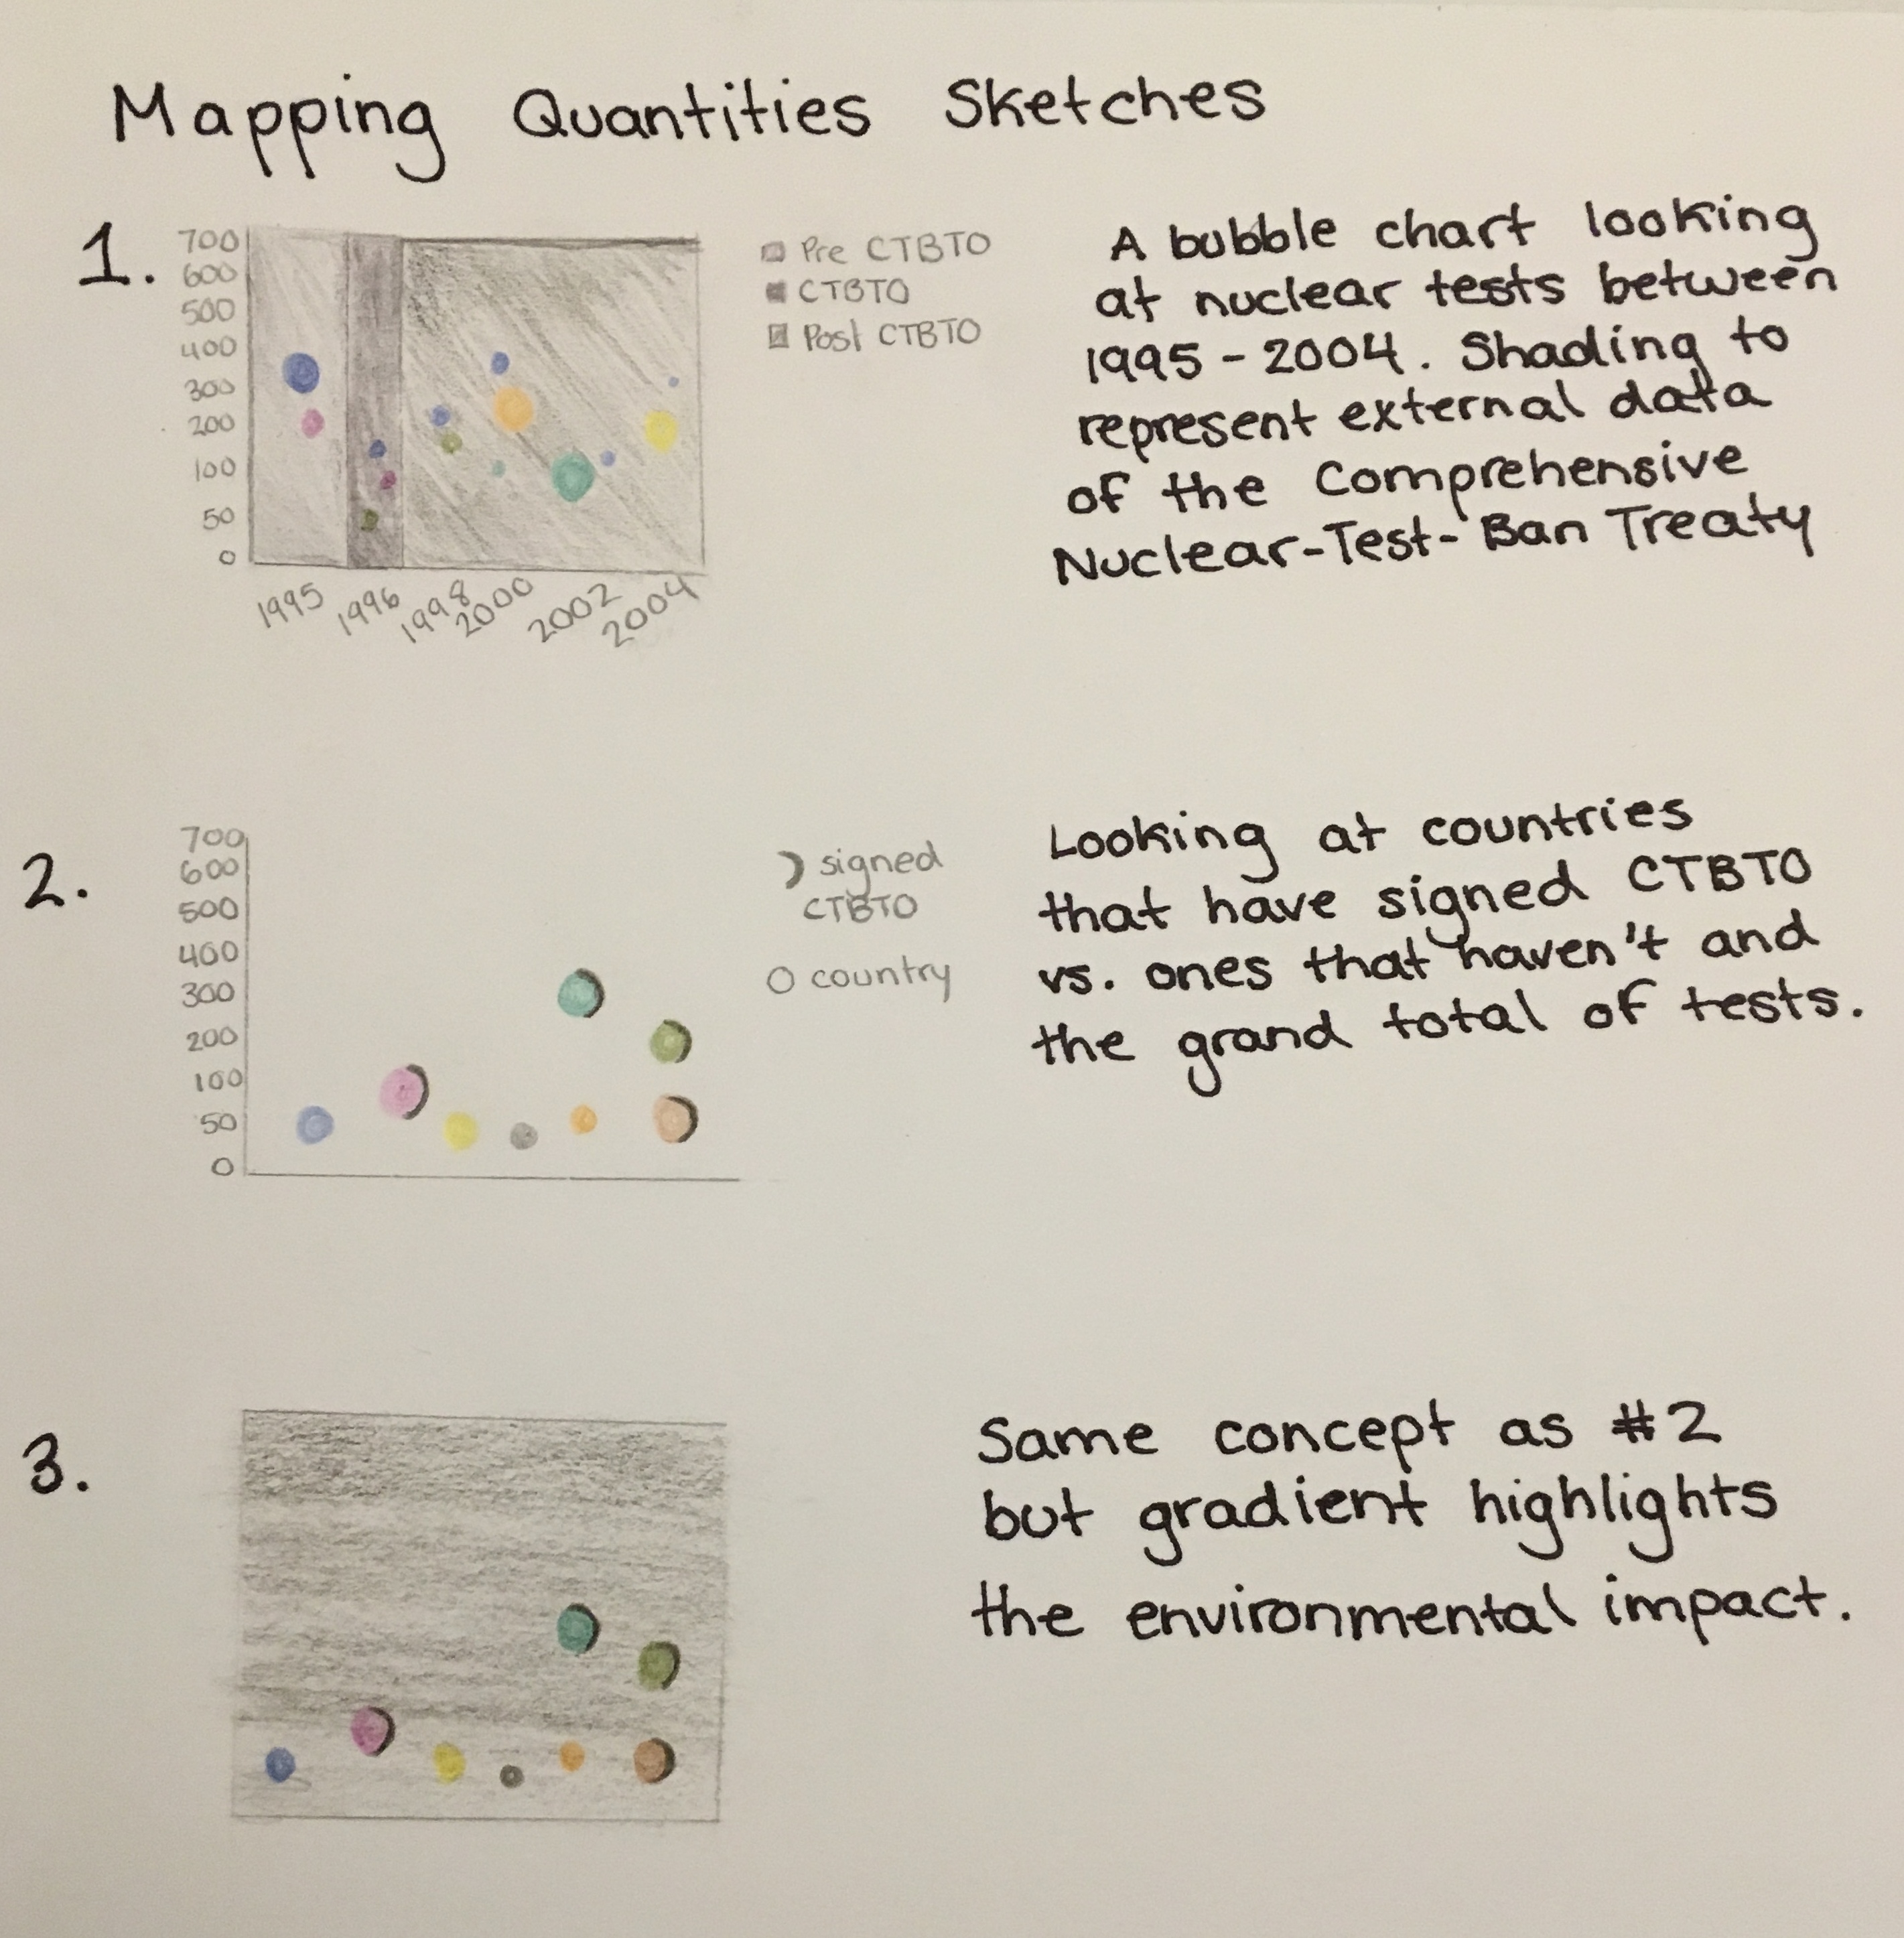 Mapping Quantities Sketches
1.
700
600
500
400
300
200
100
50
0
1995
1996
1998
2000
2002
2004
Pre CTBTO
CTBTO
Post CTBTO
A bubble chart looking
at nuclear tests between
1995 - 2004. Shading to
represent external data
of the Comprehensive
Nuclear-Test-Ban Treaty
2.
700
600
500
400
300
200
100
50
0
signed
CTBTO
country
Looking at countries
that have signed CTBTO
vs. ones that haven't and
the grand total of tests.
3.
Same concept as #2
but gradient highlights
the environmental impact.